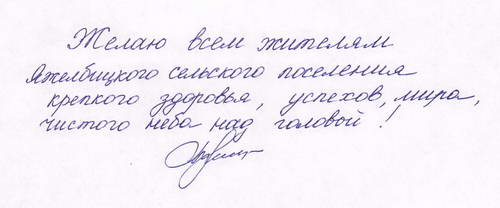 Желаю всем жителям
Яжелбицкого сельского поселения
крепкого здоровья, успехов, мира,
чистого неба над головой!